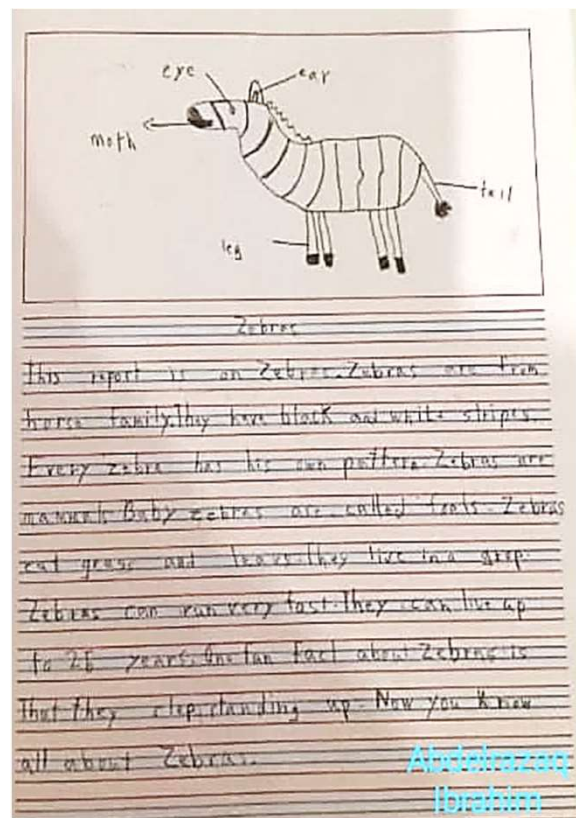 eye
ear
moth
tail
leg
Zebras
This report is on Zebras. Zebras are from
horse family. They have black and white stripes.
Every zebra has his own pattern. Zebras are
mammals Baby zebras are called foals. Zebras
eat grass and leavs. They live in a grop.
Zebras can run very fast. They can live up
to 25 years. One fun fact about Zebras is
That they slep standing up. Now you know
all about Zebras.
Abdelrazaq
Ibrahim